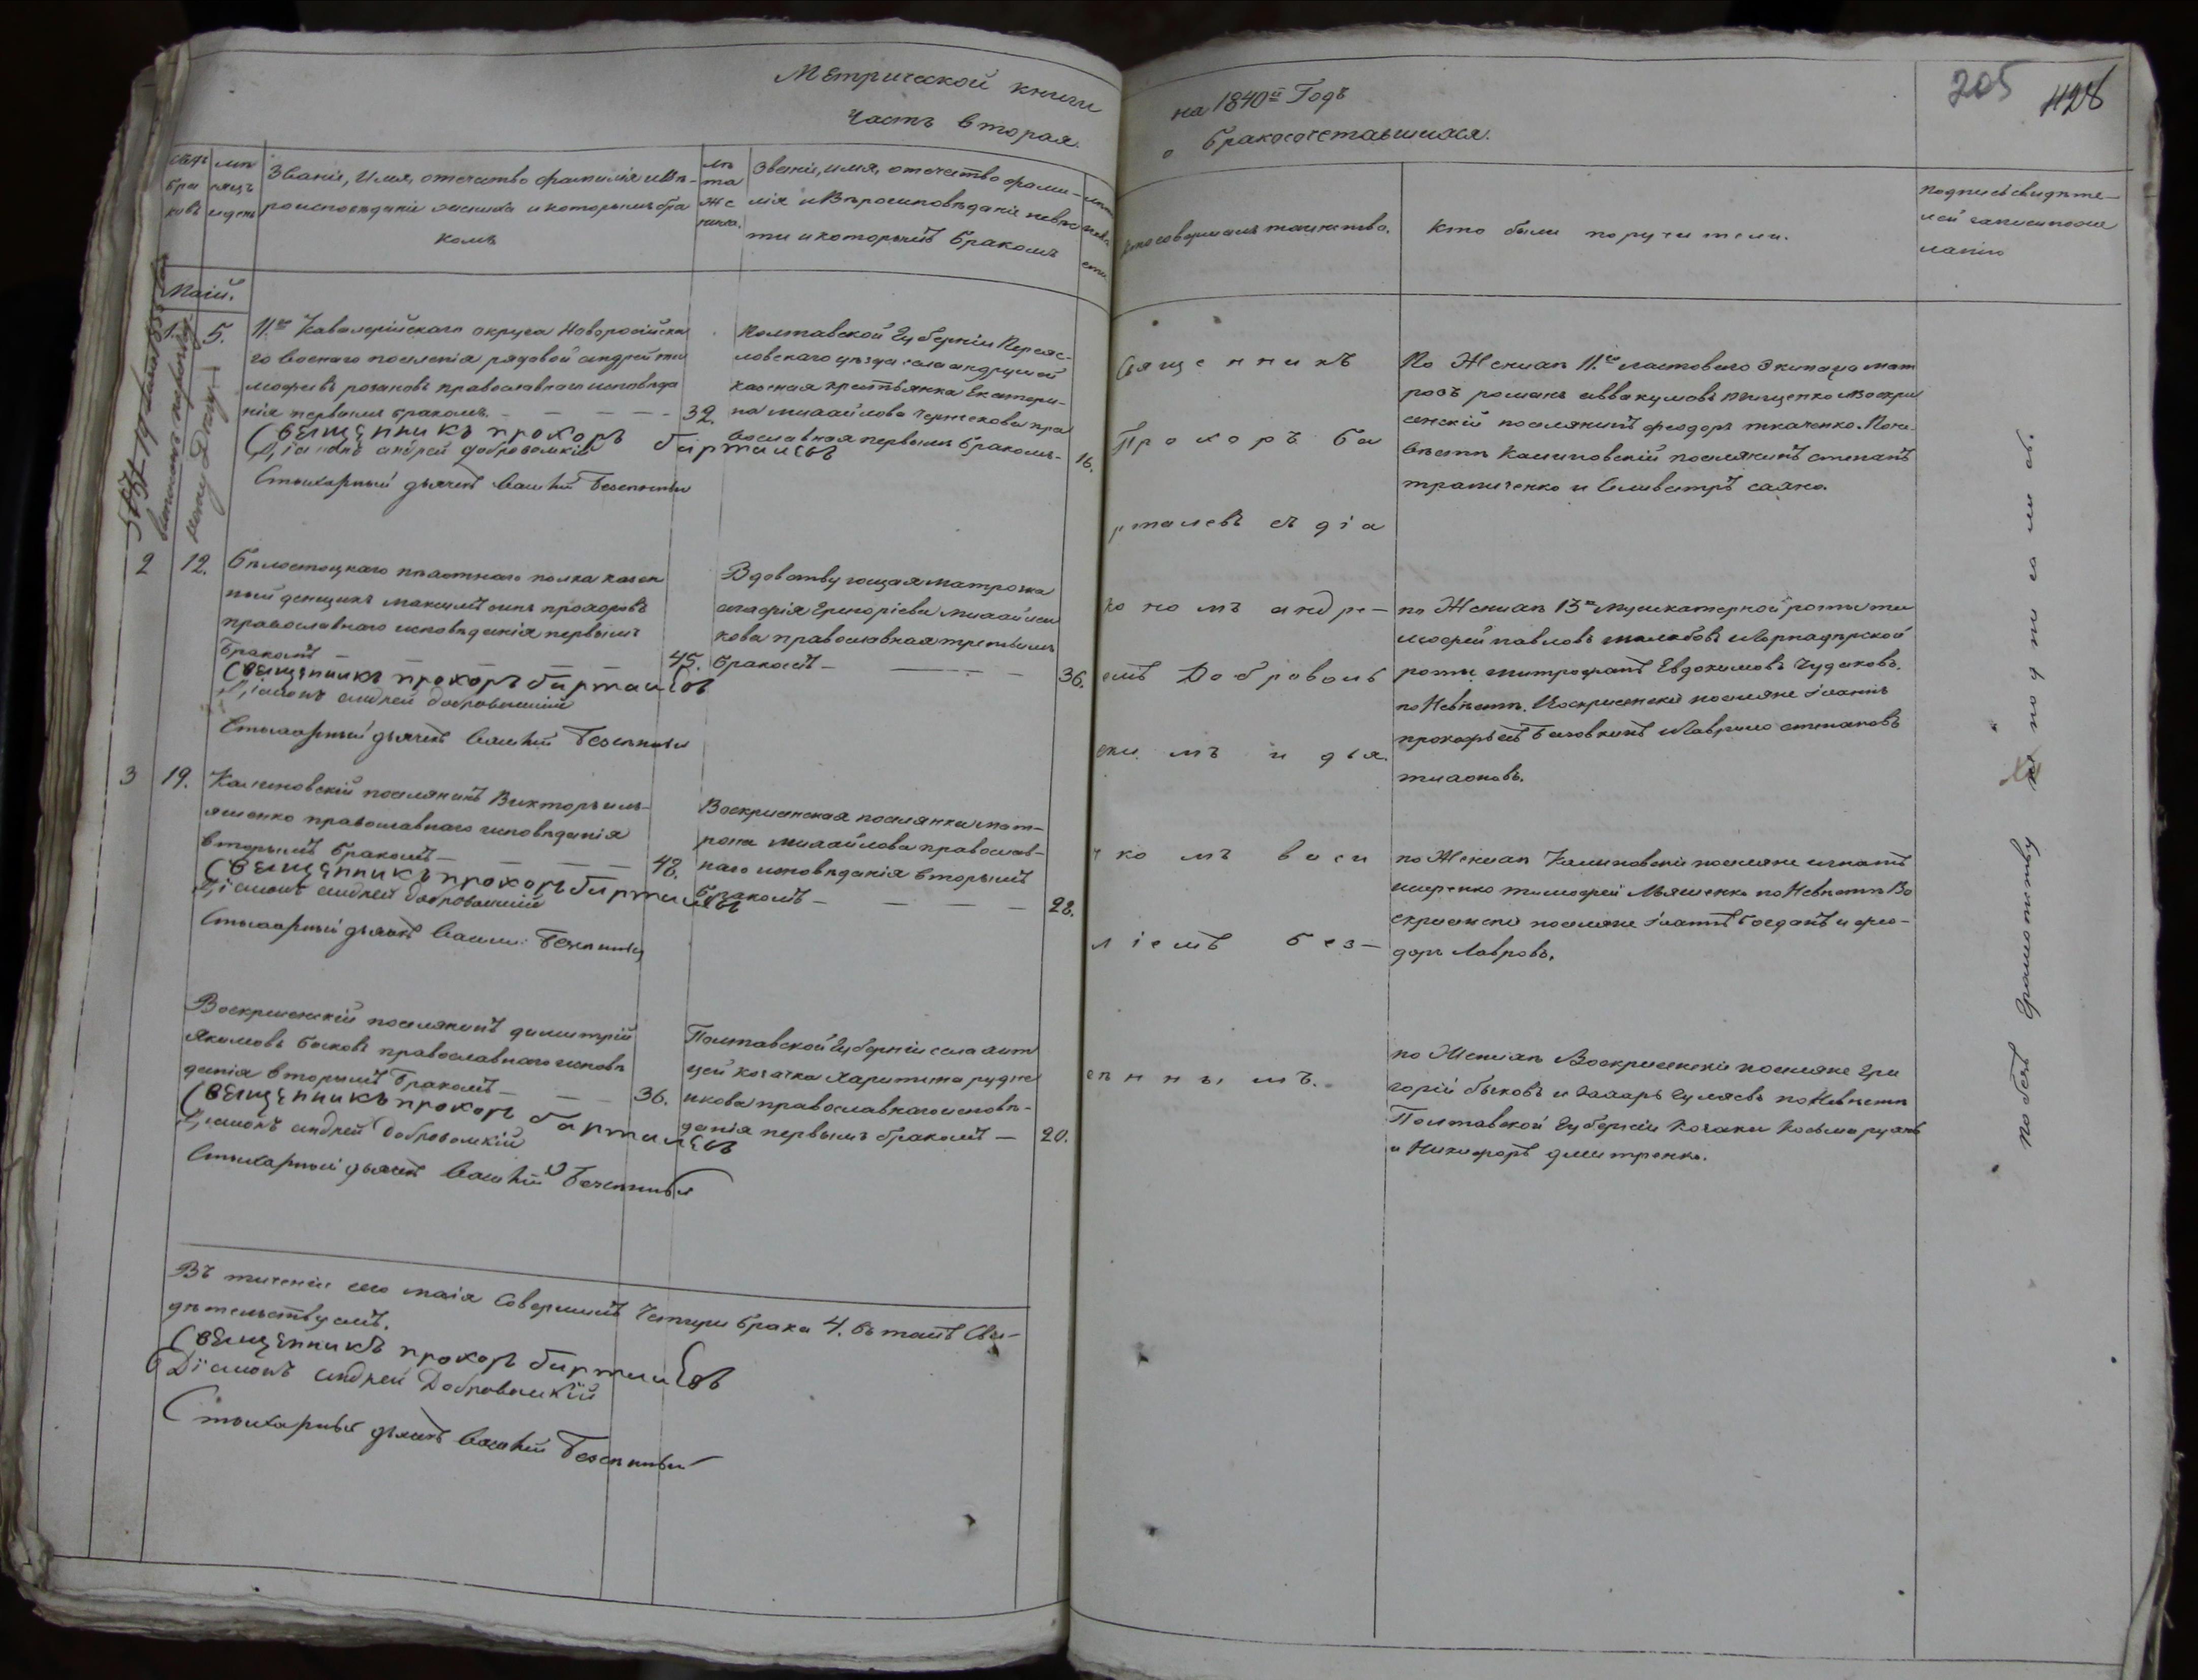 Метрической книги
Часть вторая.
на 1840й Годъ
о бракосочетавшихся.
205 428
Званіе, Имя, отечество фамилія и вѣ-
роисповѣданіе жениха и которымъ бра
комъ
лѣ
та
же
ниха.
Званіе, имя, отечество фами-
лія и Вѣроисповѣданіе невѣс
ты и которымъ бракомъ
Кто совершалъ таинство.
Кто были поручители.
подпись свидѣте-
лей записи по же
ланію
Маій.
1. 5.
11го Кавалерійскаго округа Новоросійска
го военаго поселенія рядовой андрей ти
мофѣевъ розановъ православнаго исповѣда
нія первымъ бракомъ. 32.
Священникъ прохоръ барталевъ
Діаконъ андрей добровольскій
Стихарный дьячекъ Василій Безсѣнный
Полтавской Губерніи Переяс-
ловскаго уѣзда села андрушой
казеная крестьянка Екатери-
на михайлова чертекова пра
вославная первымъ бракомъ. 16.
По Женихѣ 11го ластоваго Экипажа мат
розъ романъ аввакумовъ пащенко и воскри
сенскій поселянинъ феодоръ ткаченко. По не-
вѣстѣ Калиновскій поселянинъ степанъ
трапиченко и Сливестръ саяно.
2 12.
бѣлостоцкаго пѣхотнаго полка казен
ный денщикъ максимъ сынъ прохоровъ
православнаго исповѣданія первымъ
бракомъ 45.
Священникъ прохоръ барталевъ
Діаконъ андрей добровольскій
Стихарный дьячекъ Василій Безсѣнный
Вдовствующая матрозка
агафія Григоріева михайлен
кова православная третьимъ
бракомъ 36.
по Женихѣ 13й мушкатерной роты ти
мофей павловъ и Гарнадерской
роты митрофанъ Евдокимовъ Чудаковъ.
по Невѣстѣ. Воскрисенскіи поселяне Іоаннъ
прокофьевъ и Гаврило степановъ
тихоновъ.
3 19.
Калиновскій поселянинъ Викторъ иль-
яшенко православнаго исповѣданія
вторымъ бракомъ 48.
Священникъ прохоръ барталевъ
Діаконъ андрей добровольскій
Стихарный дьячекъ Василій Безсѣнный
Воскрисенская поселянка мат-
рона михайлова православ-
наго исповѣданія вторымъ
бракомъ 28.
по Женихѣ Калиновскіи поселяне игнатъ
ищенко тимофей Ильяшенко по Невѣстѣ Во
скрисенскіи поселяне Іоаннъ богданъ и фео-
доръ Лавровъ.
Воскрисенскій поселянинъ димитрій
Якимовъ быковъ православнаго исповѣ
данія вторымъ бракомъ 36.
Священникъ прохоръ барталевъ
Діаконъ андрей добровольскій
Стихарный дьячекъ Василій Безсѣнный
Полтавской Губерніи села
цей козачка Харитина рудне
нкова православнаго исповѣ-
данія первымъ бракомъ 20.
по Женихѣ Воскрисенскіи поселяне Гри
горій быковъ и захаръ Гуляевъ по Невѣстѣ
Полтавской Губерніи козаки Косьма
и Никифоръ дмитренко.
Священникъ
Прохоръ Ба
рталевъ съ діа
кономъ андре-
емъ Доброволь
скимъ и дья
чкомъ васи
ліемъ без-
сѣннымъ.
по безъ Грамотству не подписались.
Въ теченіи сего маія Совершилъ Четыри брака 4. въ томъ Сви-
дѣтельствуемъ.
Священникъ прохоръ барталевъ
Діаконъ андрей Добровольскій
Стихарный дьячекъ Василій Безсѣнный